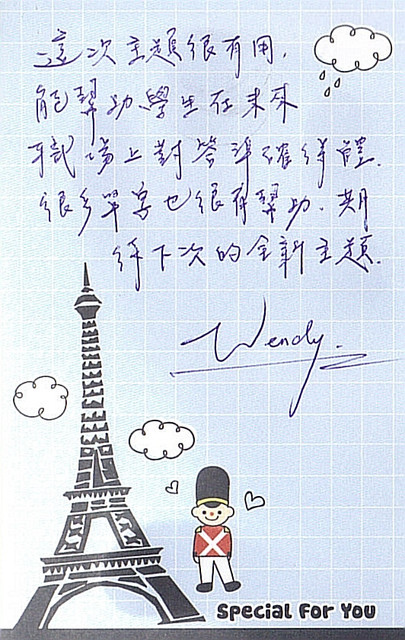 這次主題很有用,
能幫助學生在未來
職場上對答準確得體.
很多單字也很有幫助. 期
待下次的全新主題.
Wendy.
Special For You